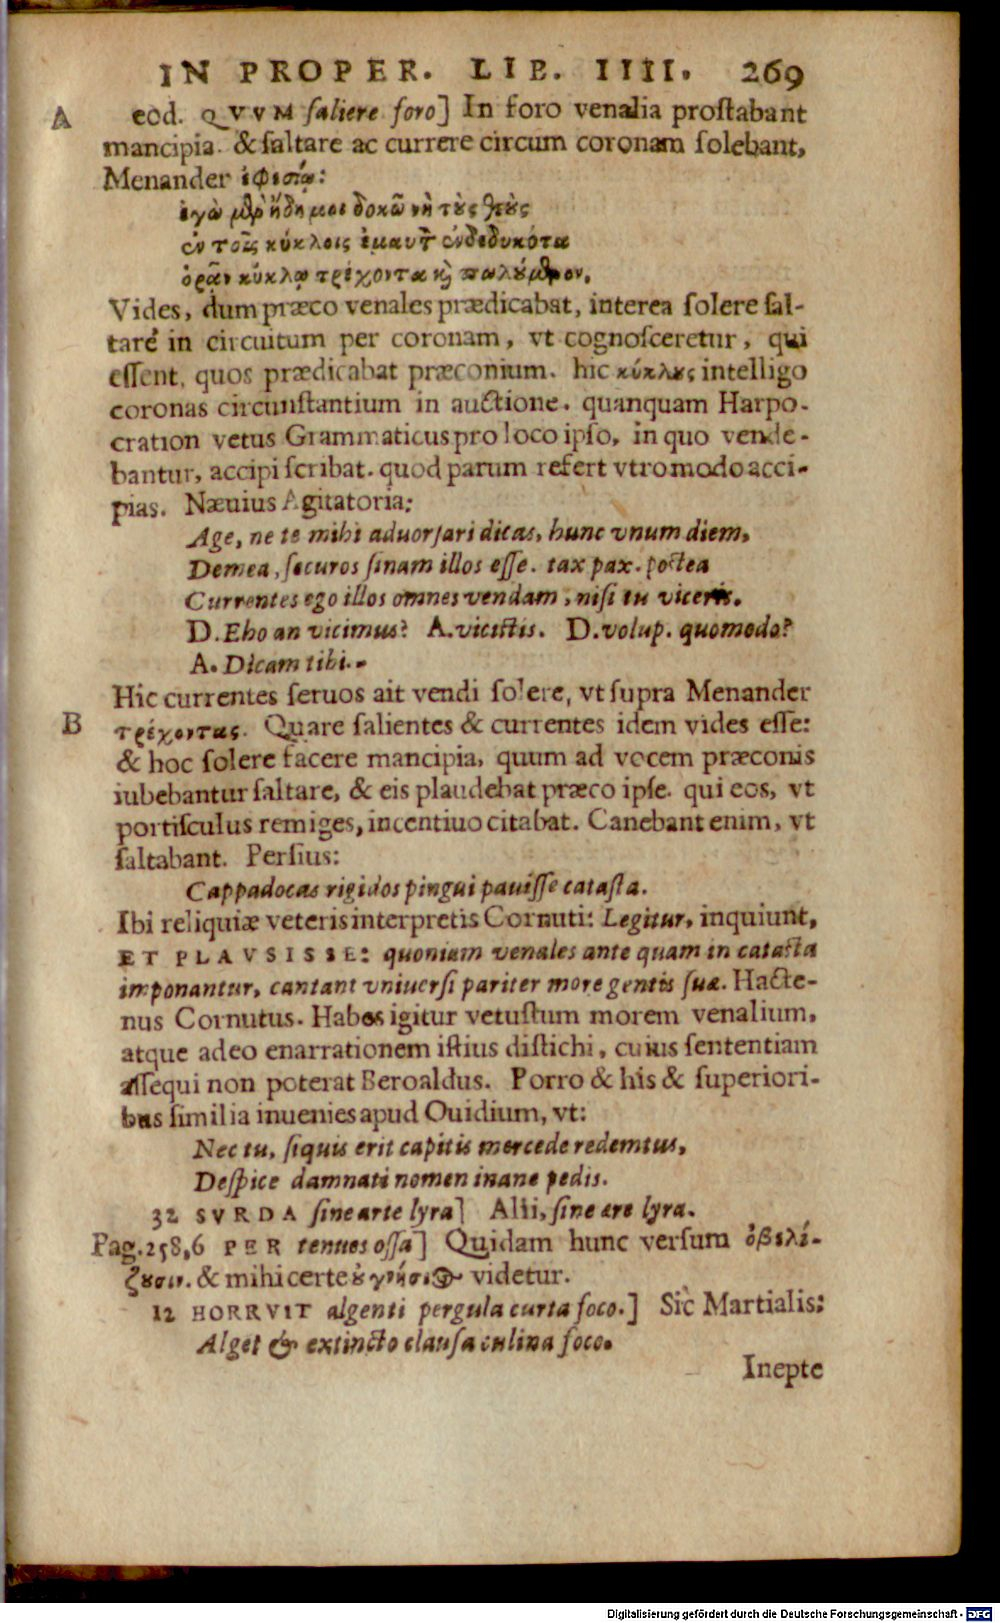 IN PROPER. LIB. IIII. 269
A eod. QVVM saliere foro] In foro venalia prostabant
mancipia. & saltare ac currere circum coronam solebant,
Menander ἐφεσίῳ:
ἐγὼ μὲν ἤδη μοι δοκῶ νὴ τοὺς θεοὺς
ἐν τοῖς κύκλοις ἐμαυτὸν ἐνδεδυκότα
ὁρᾷν κύκλῳ τρέχοντα καὶ πωλούμενον.
Vides, dum præco venales prædicabat, interea solere sal-
tare in circuitum per coronam, vt cognosceretur, qui
essent, quos prædicabat præconium. hic κύκλους intelligo
coronas circunstantium in auctione. quanquam Harpo-
cration vetus Grammaticus pro loco ipso, in quo vende-
bantur, accipi scribat. quod parum refert vtro modo acci-
pias. Næuius Agitatoria:
Age, ne te mihi aduorsari dicas, hunc vnum diem,
Demea, securos sinam illos esse. tax pax. postea
Currentes ego illos omnes vendam, nisi tu viceris.
D. Eho an vicimus? A. vicistis. D. volup. quomodo?
A. Dicam tibi.-
Hic currentes seruos ait vendi solere, vt supra Menander
B τρέχοντας. Quare salientes & currentes idem vides esse:
& hoc solere facere mancipia, quum ad vocem præconis
iubebantur saltare, & eis plaudebat præco ipse. qui eos, vt
portisculus remiges, incentiuo citabat. Canebant enim, vt
saltabant. Persius:
Cappadocas rigidos pingui pauisse catasta.
Ibi reliquiæ veteris interpretis Cornuti: Legitur, inquiunt,
ET PLAVSISSE: quoniam venales ante quam in catasta
imponantur, cantant vniuersi pariter more gentis suæ. Hacte-
nus Cornutus. Habes igitur vetustum morem venalium,
atque adeo enarrationem istius distichi, cuius sententiam
assequi non poterat Beroaldus. Porro & his & superiori-
bus similia inuenies apud Ouidium, vt:
Nec tu, siquis erit capitis mercede redemtus,
Despice damnati nomen inane pedis.
32 SVRDA sine arte lyra] Alii, sine ære lyra.
Pag. 258, 6 PER tenues ossa] Quidam hunc versum ὀβελί-
ζουσιν. & mihi certe οὐ γνήσιος videtur.
12 HORRVIT algenti pergula curta foco.] Sic Martialis:
Alget & extincto clausa culina foco.
Inepte
Digitalisierung gefördert durch die Deutsche Forschungsgemeinschaft - DFG